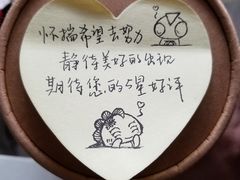 怀揣希望去努力
静待美好的出现
期待您的5星好评